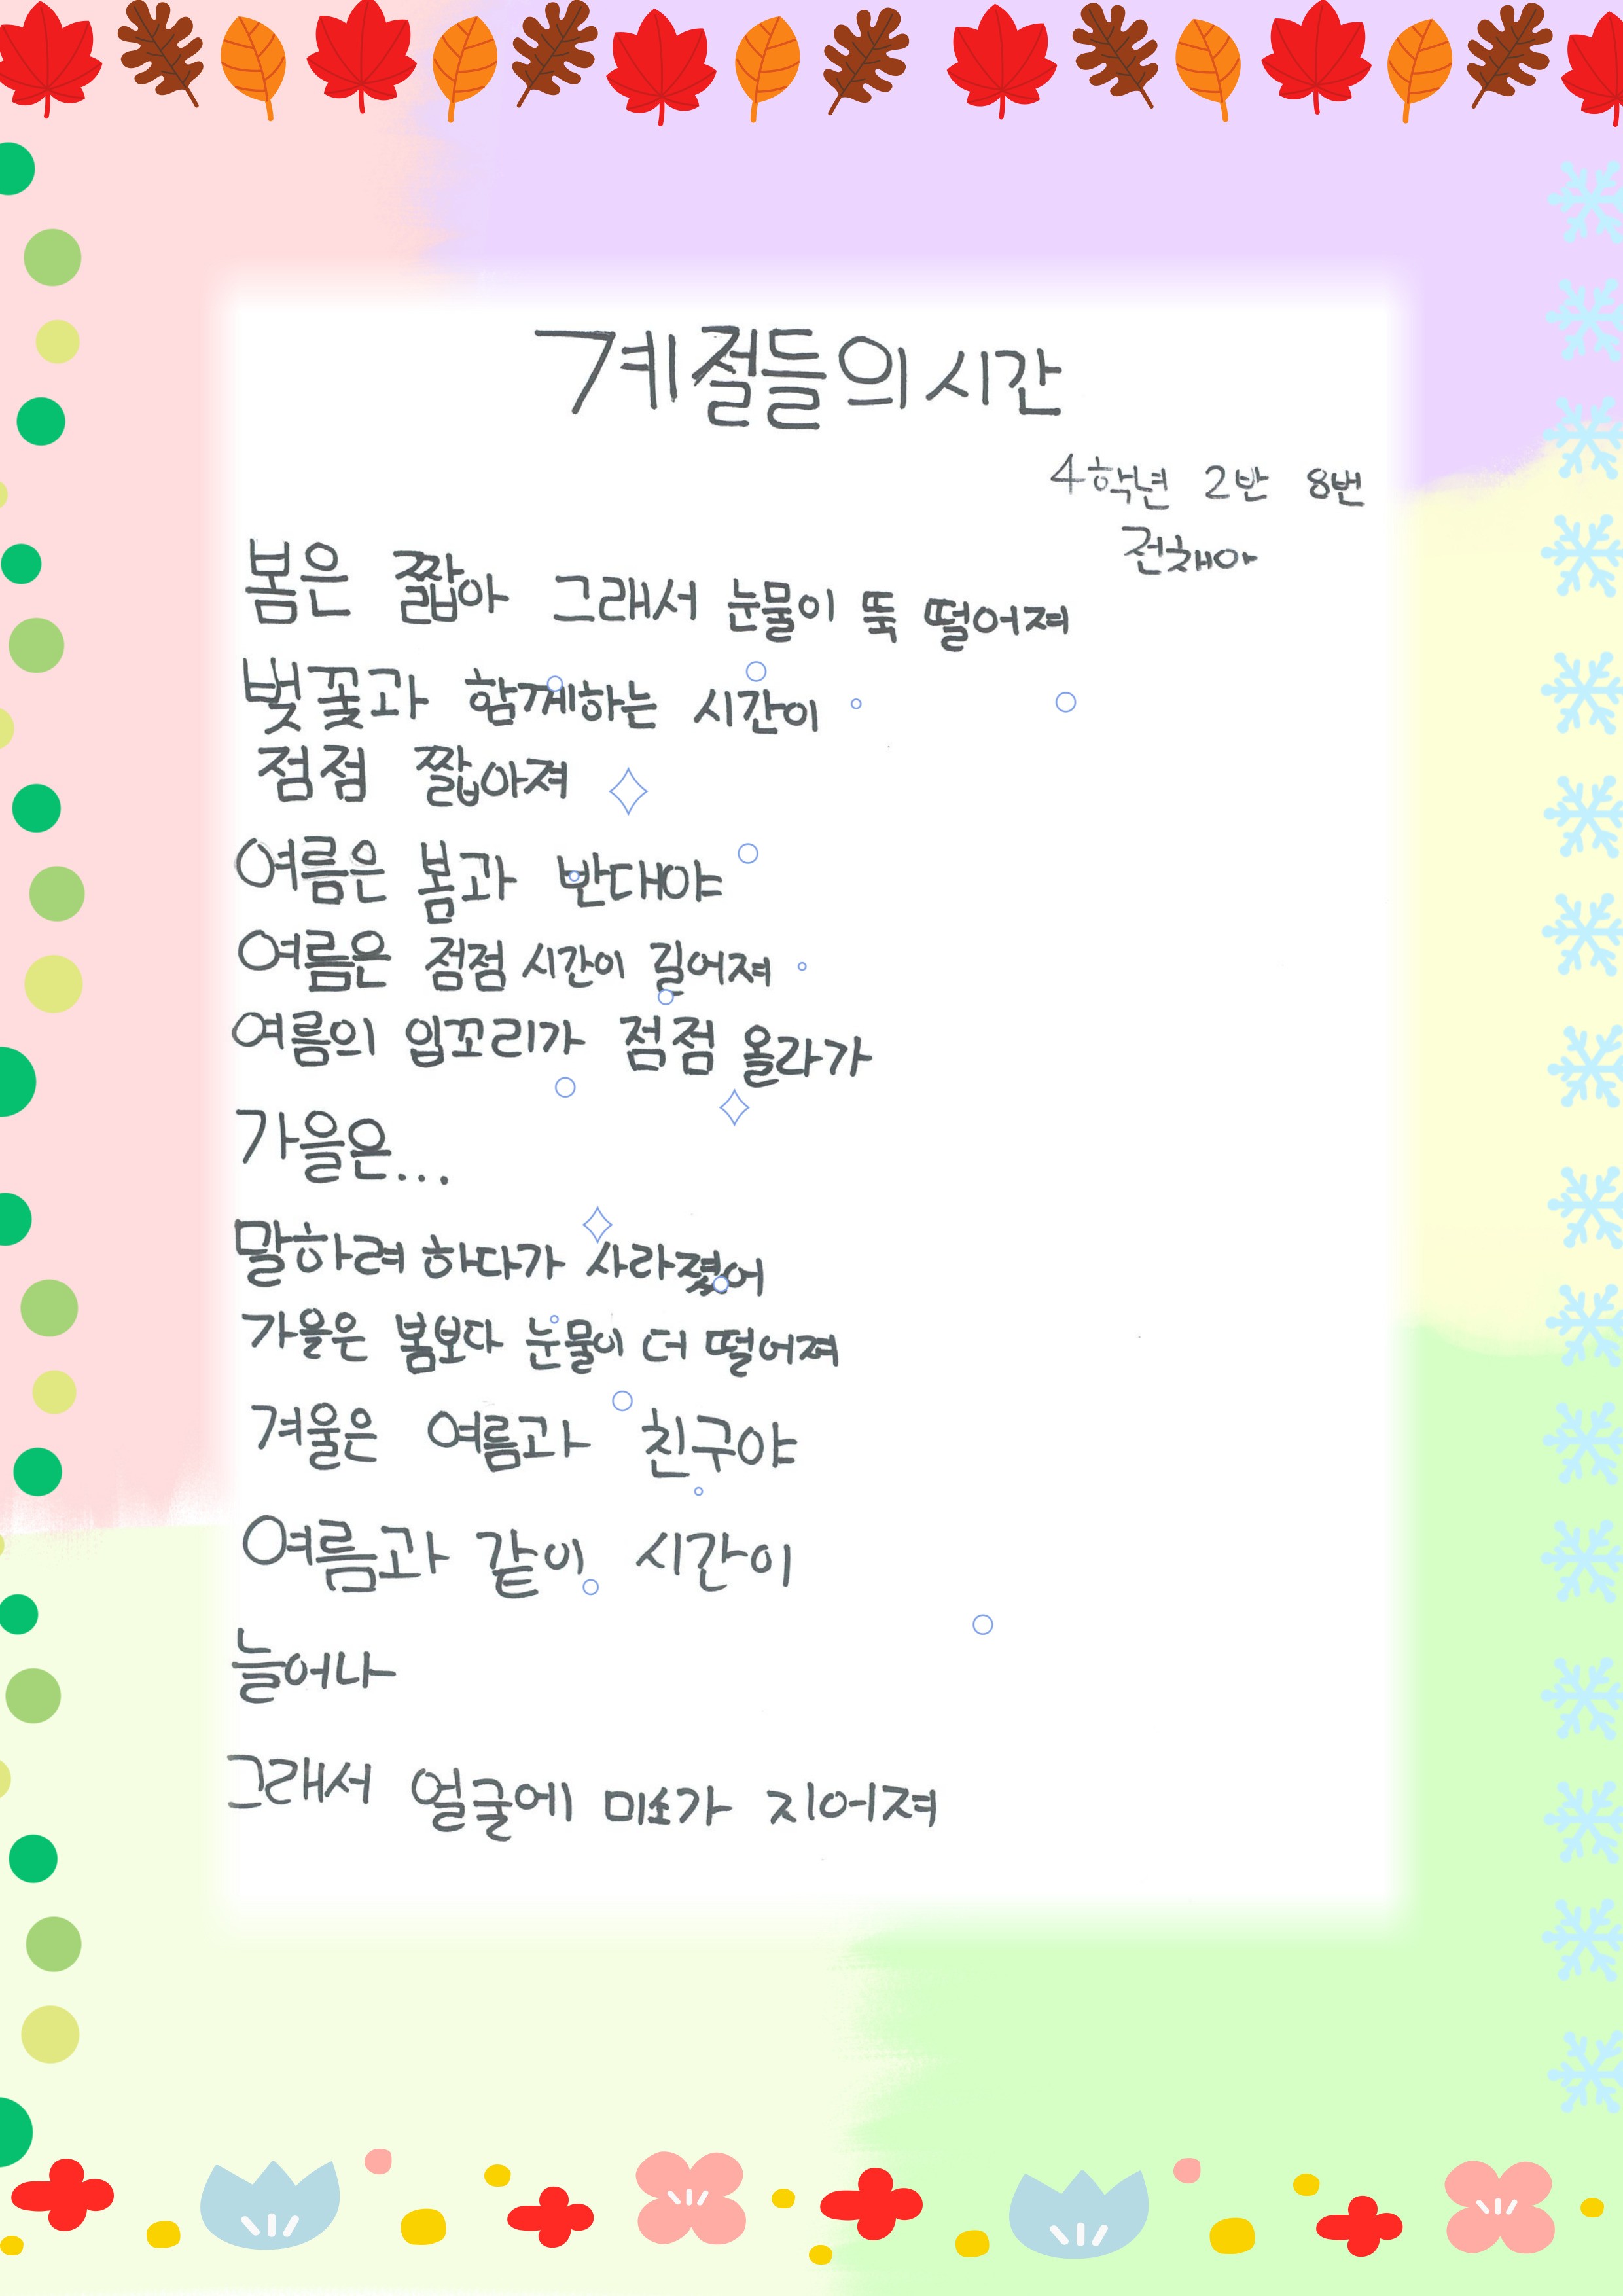 계절들의 시간
4학년 2반 8번
전채아
봄은 짧아 그래서 눈물이 뚝 떨어져
벚꽃과 함께하는 시간이
점점 짧아져
여름은 봄과 반대야
여름은 점점 시간이 길어져
여름의 입꼬리가 점점 올라가
가을은...
말하려 하다가 사라졌어
가을은 봄보다 눈물이 더 떨어져
겨울은 여름과 친구야
여름과 같이 시간이
늘어나
그래서 얼굴에 미소가 지어져